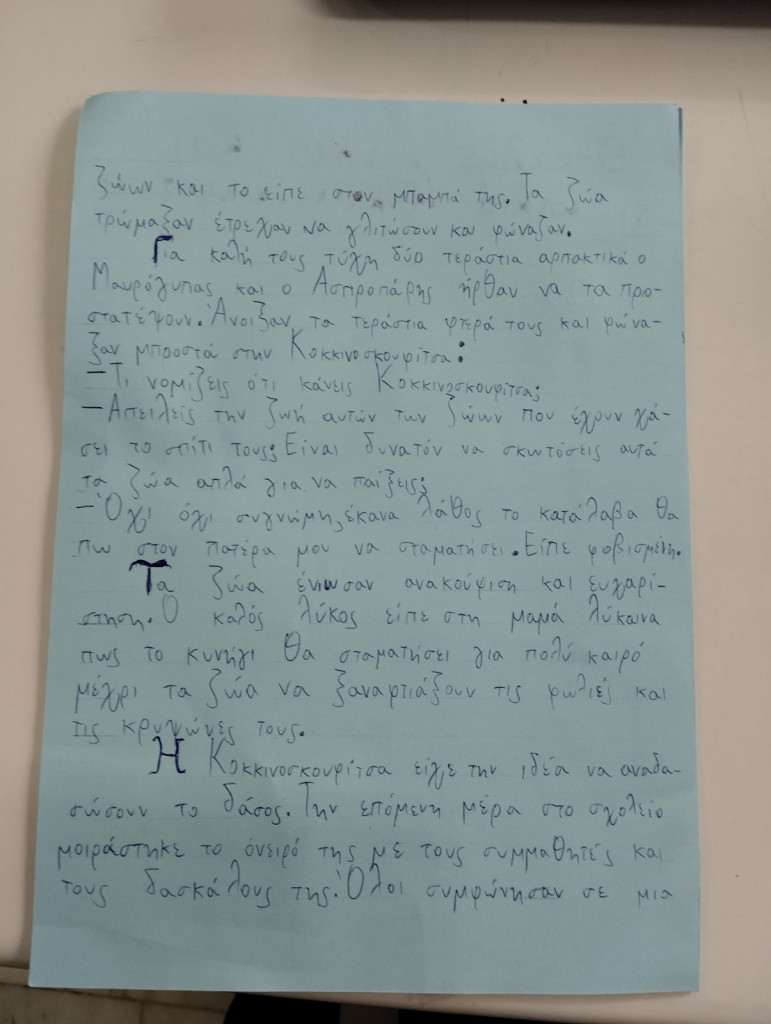 ζώων και το είπε στον μπαμπά της. Τα ζώα
τρώμαξαν έτρεχαν να γλιτώσουν και φώναζαν.
Για καλή τους τύχη δύο τεράστια αρπακτικά ο
Μαυρόγυπας και ο Ασπροπάρης ήρθαν να τα προ-
στατέψουν. Άνοιξαν τα τεράστια φτερά τους και φώνα-
ξαν μπροστά στην Κοκκινοσκουφίτσα:
-Τι νομίζεις ότι κάνεις Κοκκινοσκουφίτσα;
-Απειλείς την ζωή αυτών των ζώων που έχουν χά-
σει το σπίτι τους; Είναι δυνατόν να σκωτόσεις αυτά
τα ζώα απλά για να παίξεις;
-Όχι όχι συγνώμη, έκανα λάθος το κατάλαβα θα
πω στον πατέρα μου να σταματήσει. Είπε φοβισμένη.
Τα ζώα ένιωσαν ανακούφιση και ευχαρί-
στηση. Ο καλός λύκος είπε στη μαμά λύκαινα
πως το κυνήγι θα σταματήσει για πολύ καιρό
μέχρι τα ζώα να ξαναφτιάξουν τις φωλιές και
τις κρυψώνες τους.
Η Κοκκινοσκουφίτσα είχε την ιδέα να αναδα-
σώσουν το δάσος. Την επόμενη μέρα στο σχολείο
μοιράστηκε το όνειρό της με τους συμμαθητές και
τους δασκάλους της. Όλοι συμφώνησαν σε μια